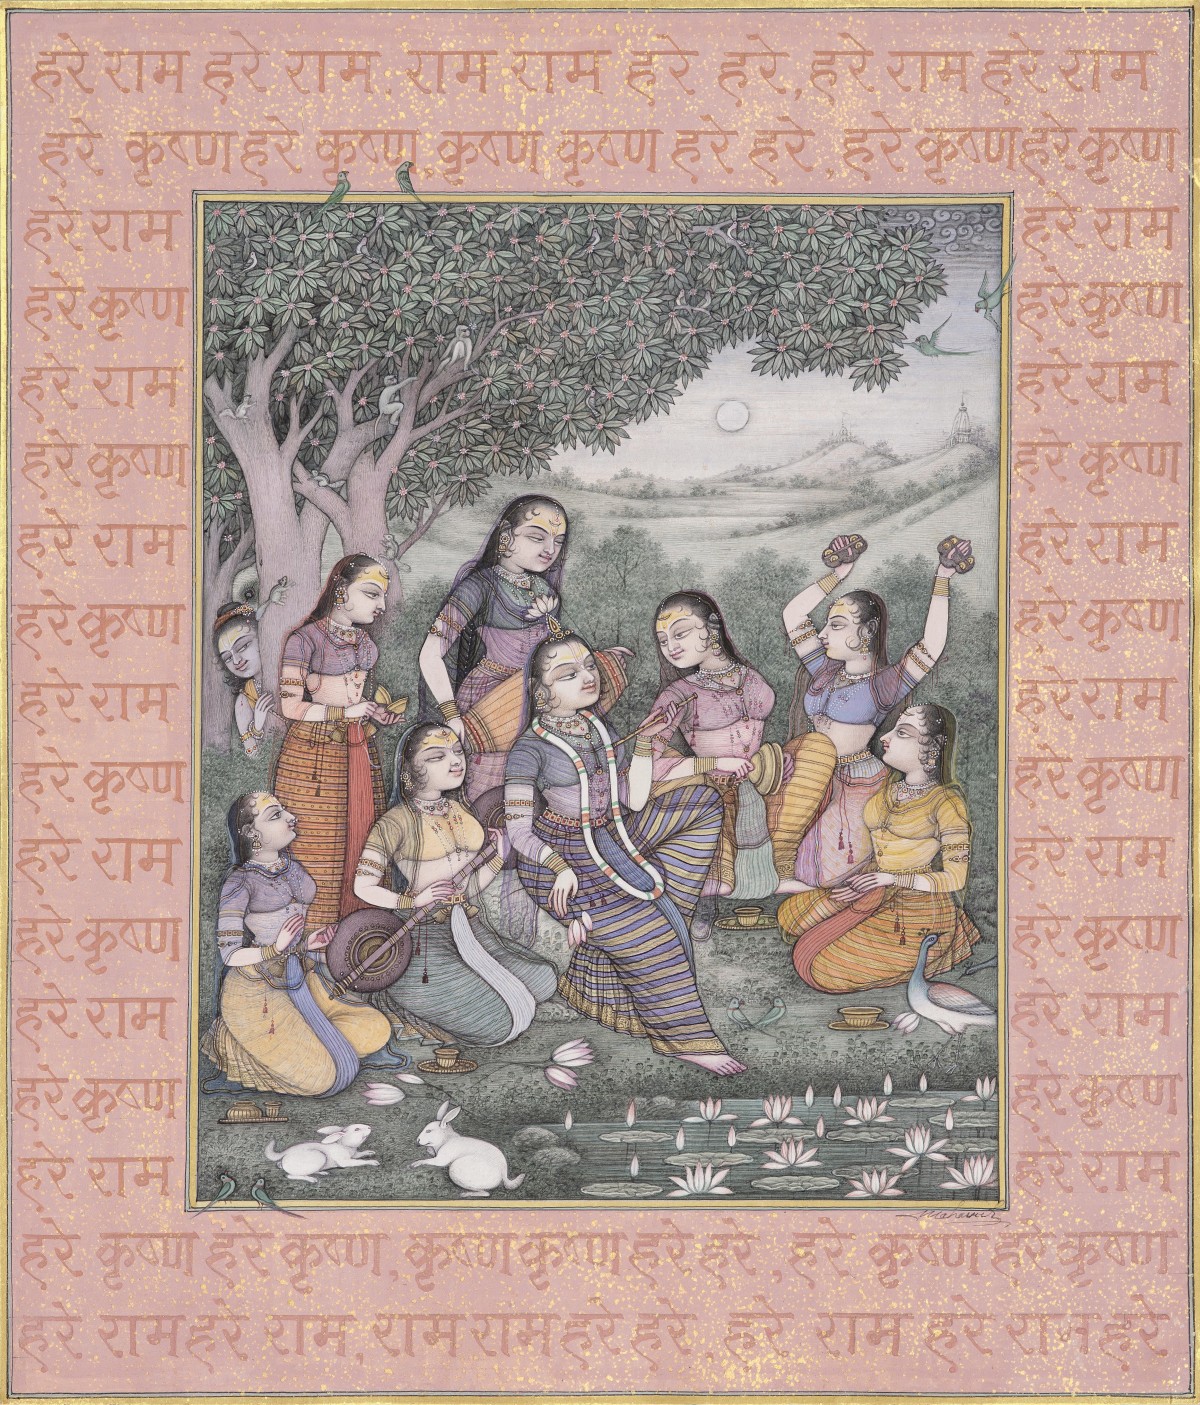 हरे राम हरे राम, राम राम हरे हरे, हरे राम हरे राम
हरे कृष्ण हरे कृष्ण, कृष्ण कृष्ण हरे हरे, हरे कृष्ण हरे कृष्ण
हरे राम
हरे कृष्ण
हरे राम
हरे कृष्ण
हरे राम
हरे कृष्ण
हरे राम
हरे कृष्ण
हरे राम
हरे कृष्ण
हरे राम
हरे कृष्ण
हरे राम
हरे राम
हरे कृष्ण
हरे राम
हरे कृष्ण
हरे राम
हरे कृष्ण
हरे राम
हरे कृष्ण
हरे राम
हरे कृष्ण
हरे राम
हरे कृष्ण
हरे राम
हरे कृष्ण हरे कृष्ण, कृष्ण कृष्ण हरे हरे, हरे कृष्ण हरे कृष्ण
हरे राम हरे राम, राम राम हरे हरे, हरे राम हरे राम हरे